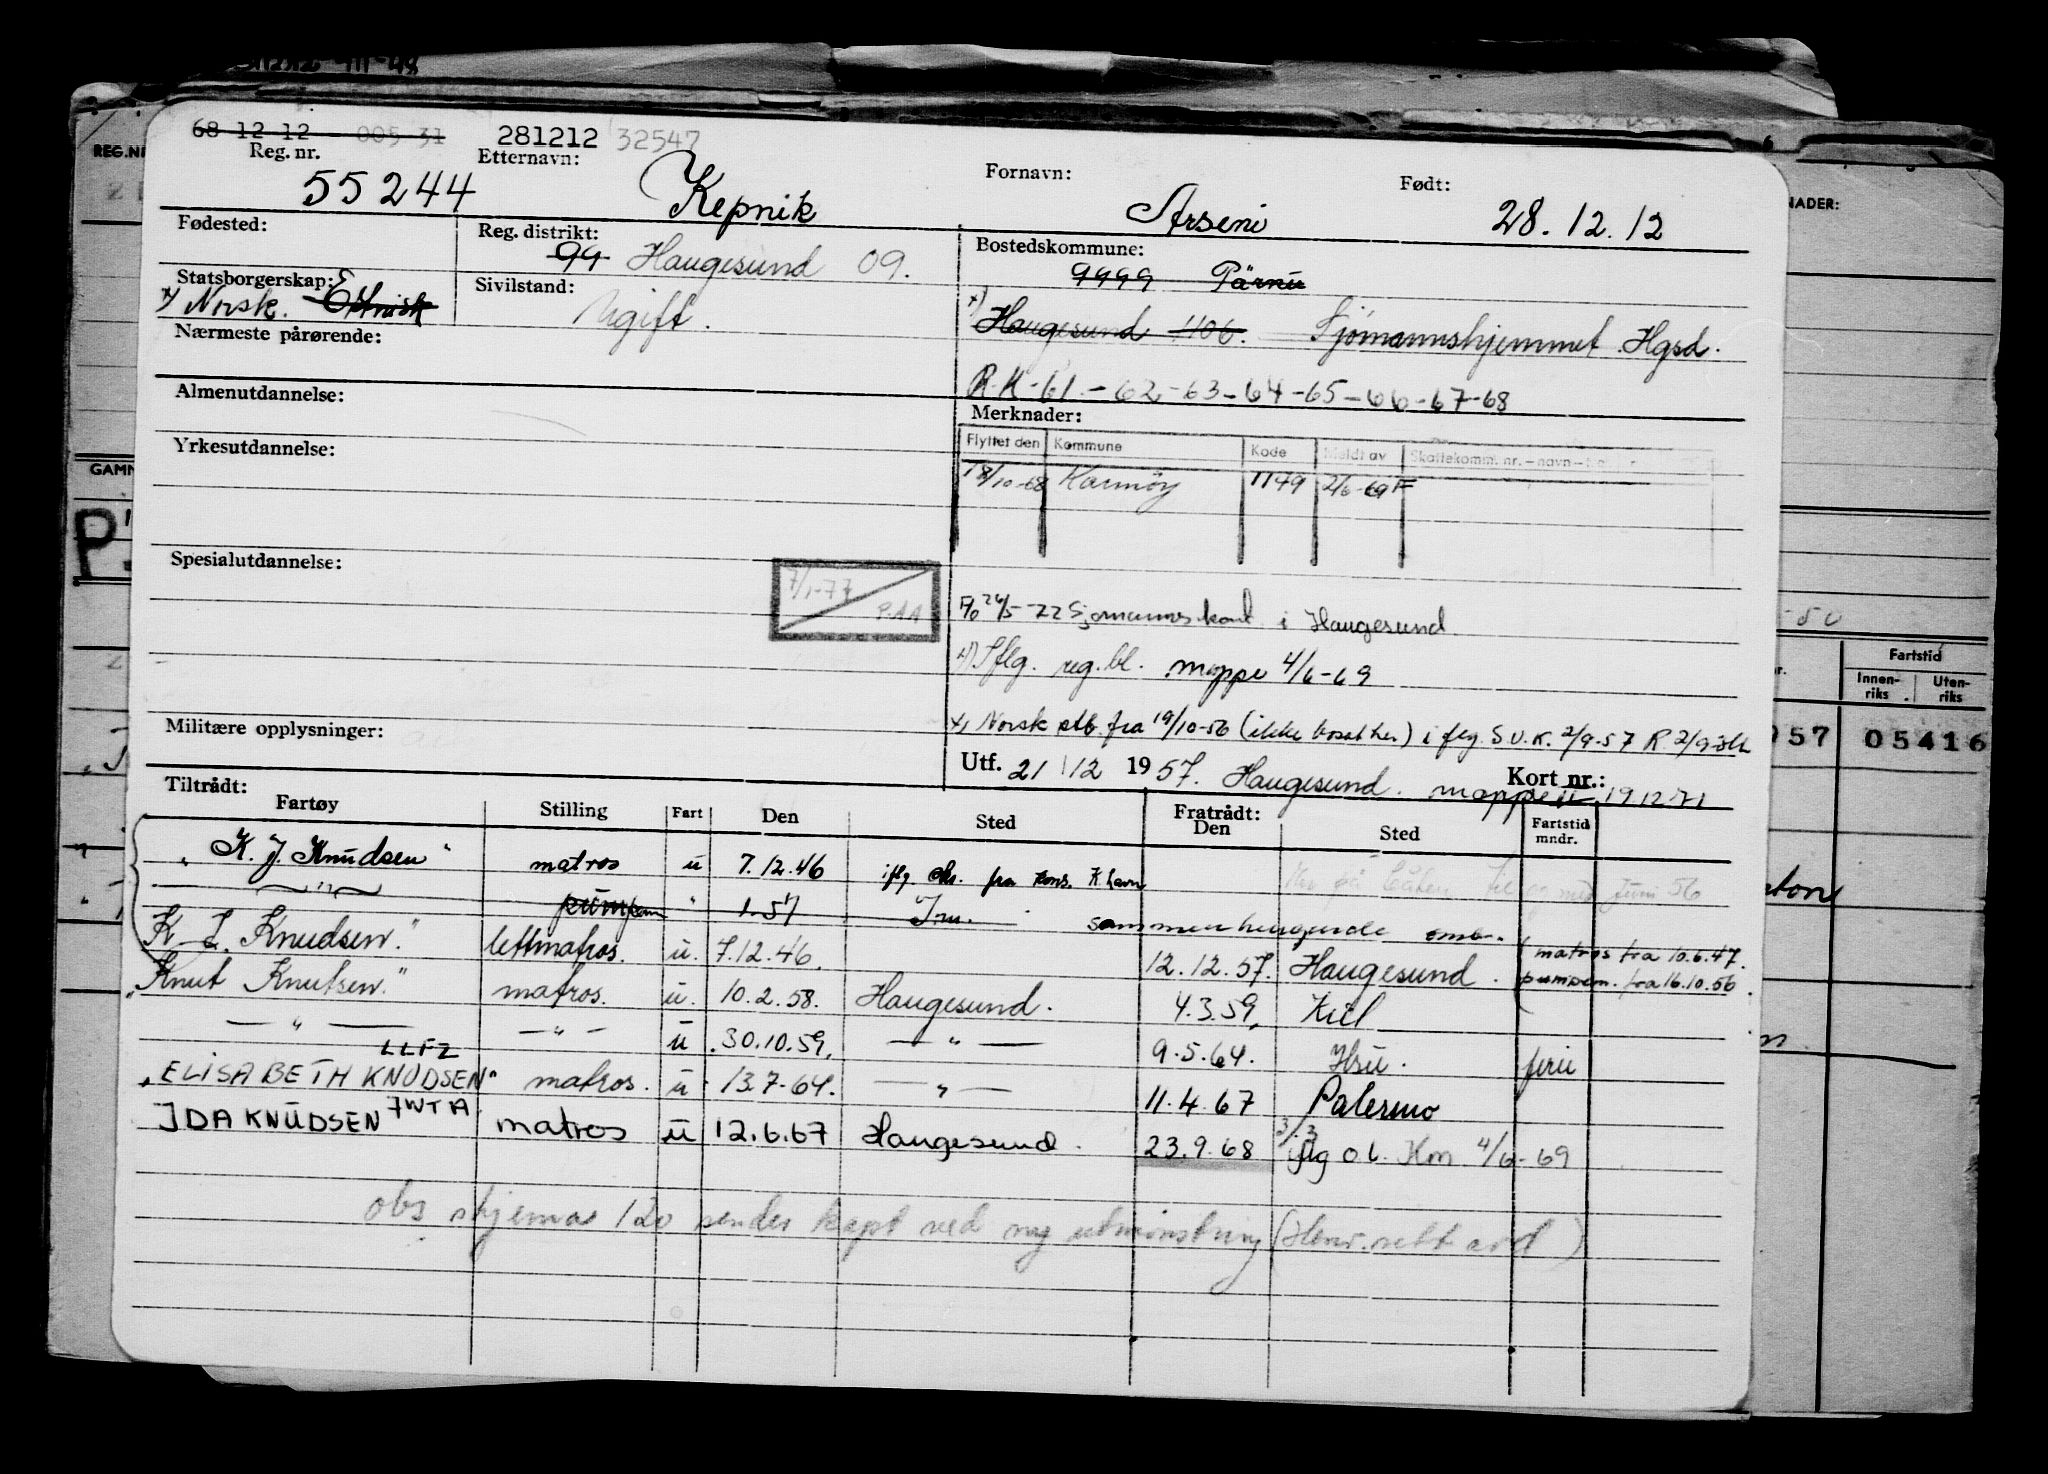 68 12 12 - 005 31 281212 32547
Reg. nr. Etternavn: Fornavn: Født:
55244 Kepnik Arseni 28.12.12
Fødested: Reg. distrikt: Bostedskommune:
99 Haugesund 09. 9999 Pärnu
Statsborgerskap: Sivilstand:
x) Norsk. Estnisk Ugift. x) Haugesund 1106. Sjømannshjemmet Hgsd.
Nærmeste pårørende:
R.K-61-62-63-64-65-66-67-68
Almenutdannelse: Merknader:
Flyttet den Kommune Kode Meldt av Skattekomm. nr. - navn -
Yrkesutdannelse:
18/10-68 Karmøy 1149 2/6-69 F
Spesialutdannelse:
7/1-77 P.AA
F/o 26/5-72 Sjømannskont i Haugesund
x) Iflg. reg. bl. mappe 4/6-69
Militære opplysninger: x, Norsk stb. fra 19/10-56 (ikke bosatt her) i flg. S.U.K. 2/9-57 R. 2/9
Utf. 21/12 1957. Haugesund. Kort nr.:
mappe 19 12 71
Tiltrådt: Fratrådt:
Fartøy Stilling Fart Den Sted Den Sted Fartstid mndr.
"K. J. Knudsen" matros u 7.12.46 iflg. fra kons. K.havn juni 56
" pumpem " 1.57 sammenhengende
K. J. Knudsen." lettmatros. u. 7.12.46. 12.12.57. Haugesund. matros fra 10.6.47.
pumpem. fra 16.10.56.
"Knut Knutsen." matros. u. 10.2.58. Haugesund. 4.3.59. Kiel
— " — — " — u .30.10.59. — " — 9.5.64. ferie
LLFZ
"ELISABETH KNUDSEN" matros. u 13.7-64. — " — 11.4.67 Palermo
IDA KNUDSEN JWTA matros u 12.6.67 Haugesund. 23.9.68 3/3 iflg o.l. Km 4/6-69
obs skjema 120 sendes kept ved ny utmønstring
REG.NR
GAMM
P.
NADER:
-50
Fartstid
Innen-riks Uten-riks
957 05416